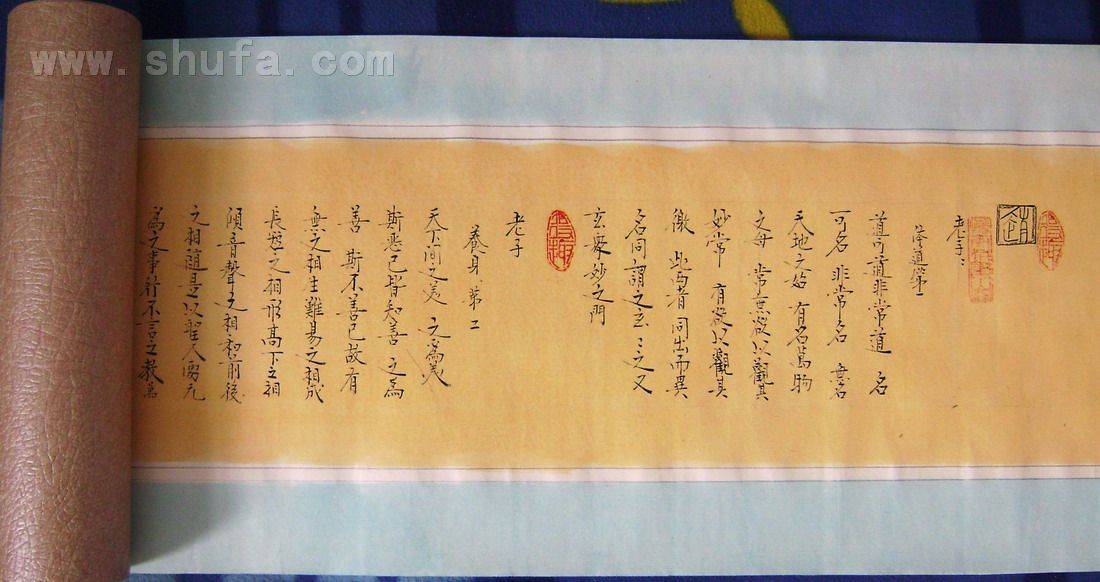 www.shufa.com
老子:
道第一
道可道非常道 名
可名 非常名 無名
天地之始 有名萬物
之母 常無欲以觀其
妙常 有欲以觀其
徼 此两者 同出而異
名同謂之玄〻之又
玄衆妙之門
老子
養身 第二
天下間之美 之為美
斯惡已皆知善 之為
善 斯不善已故有
無之相生難易之相成
長短之相形高下之相
傾音聲之相和前後
之相隨是以聖人處无
為之事行不言之教萬